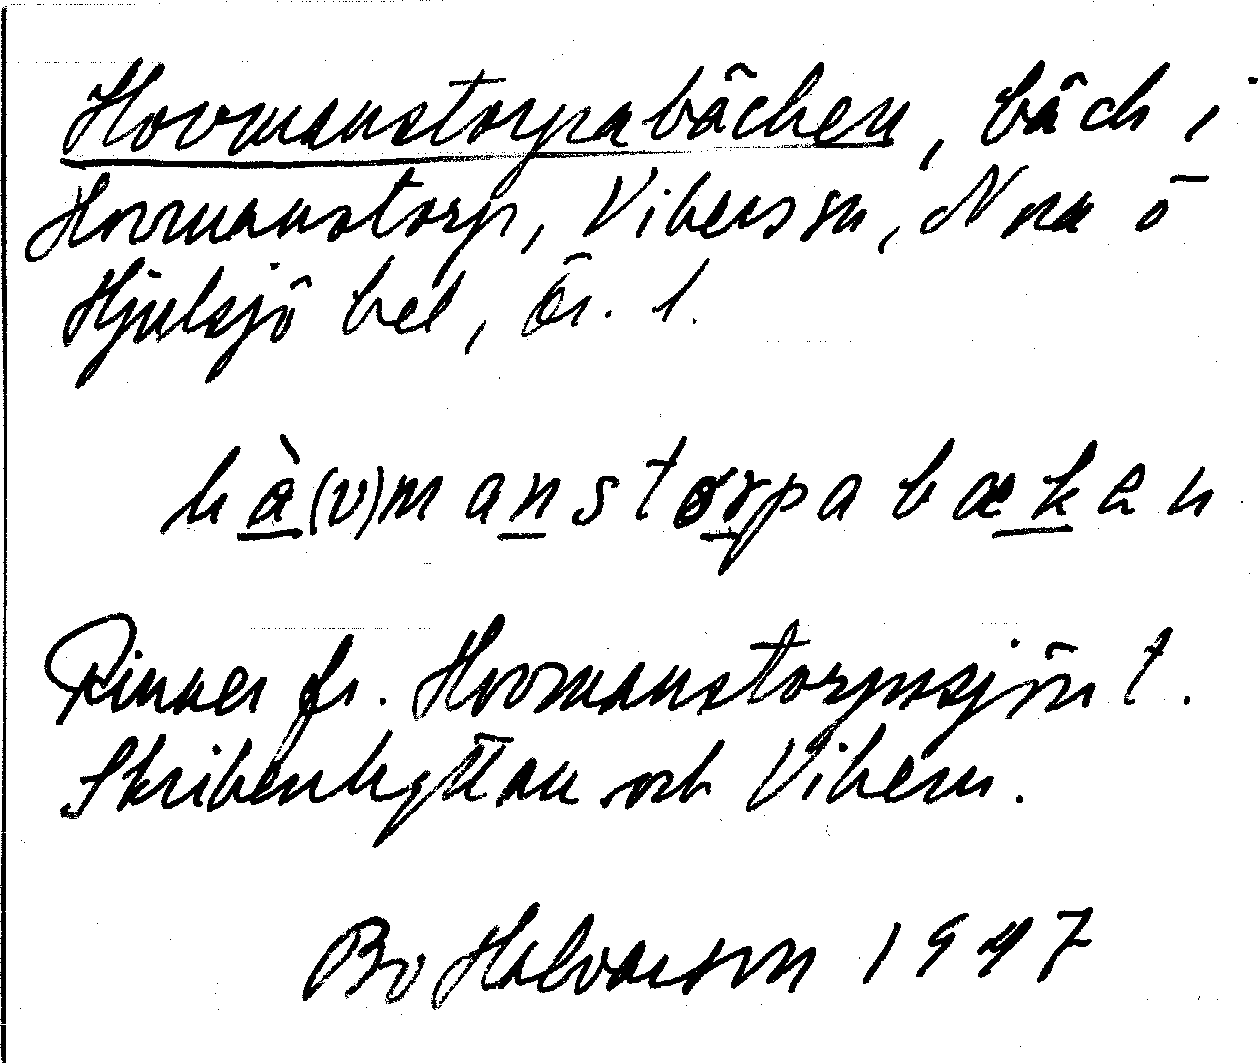 Hovmanstorpabäcken, bäck i
Hovmanstorp, Vibersm, Nora o
Hjulsjö bel, Ör. l.
hå̀(v)manstorpabækan
Rinner fr. Hovmanstorpssjön t.
Skribenhyttan och Vibern.
Bo Halvarson 1947